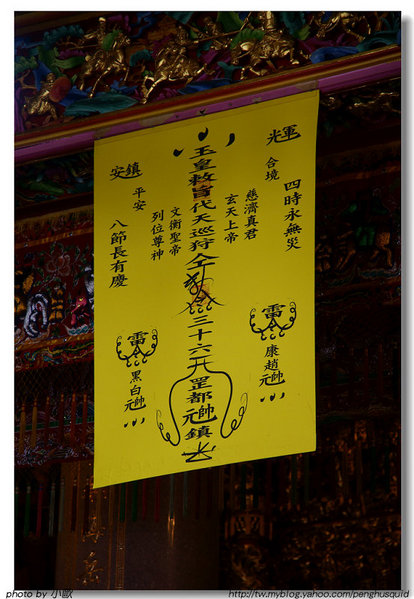 輝
四時永無災
合境
慈濟真君
玄天上帝
玉皇敕旨代天巡狩令
三十六天罡都元帥鎮
文衡聖帝
列位尊神
鎮安
平安
八節長有慶
雷令康趙元帥
雷令黑白元帥
photo by 小歐
http://tw.myblog.yahoo.com/penghusquid